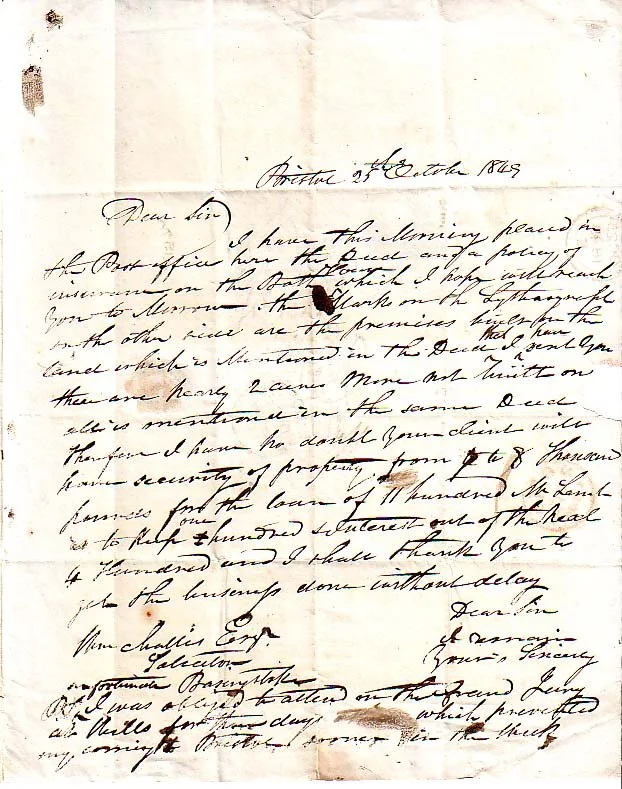 Bristol 25th October 1849
Dear Sir
I have this Morning placed in
the Post office here the Deed and a policy of
insurance on the Bath which I hope will reach
You to Morrow. the Mark on the Lythograph
on the other side are the premises built on the
land which is Mentioned in the Deed that I have sent You
there are nearly 2 acres More not built on
all is mentioned in the same Deed
therefore I have no doubt Your client will
have security of property from 7 to 8 Thousand
pounds for the loan of 11 hundred Mr
is to keep one hundred & interest out of the
4 Hundred and I shall thank You to
get the business done without delay
Dear Sir
Wm Challis Esqr I remain
Solicitor Your's Sincerely
Basingstoke
PS I was obliged to attend on the Grand Jury
at Wells for days which prevented
my coming to Bristol sooner in the Week